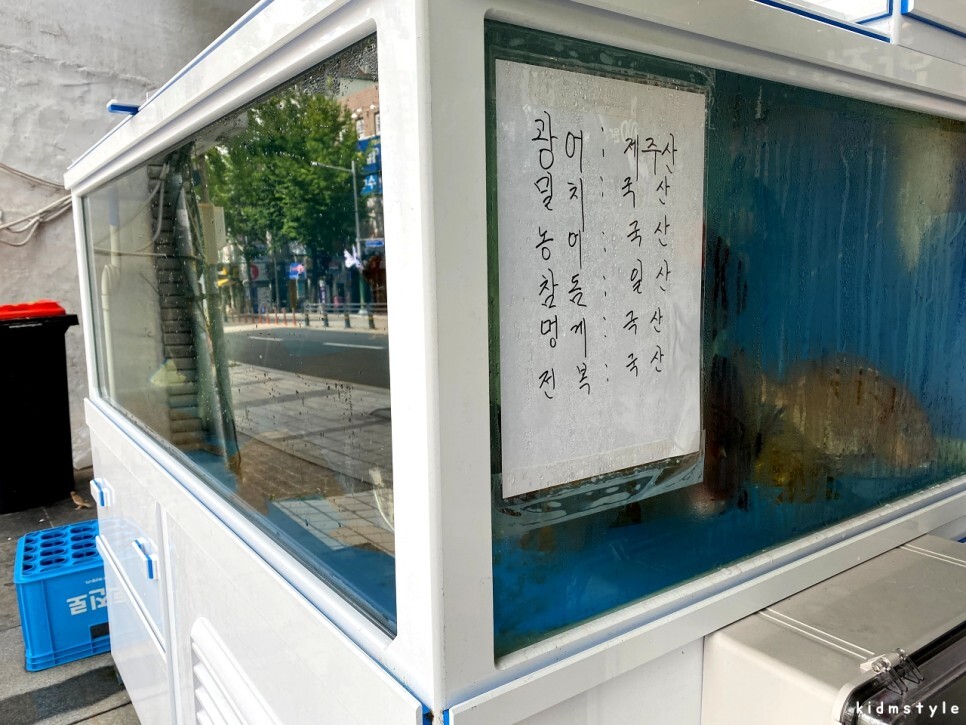 광어 : 제주산
밀치 : 국산
농어 : 국산
참돔 : 일산
멍게 : 국산
전복 : 국산
진로
kidmstyle